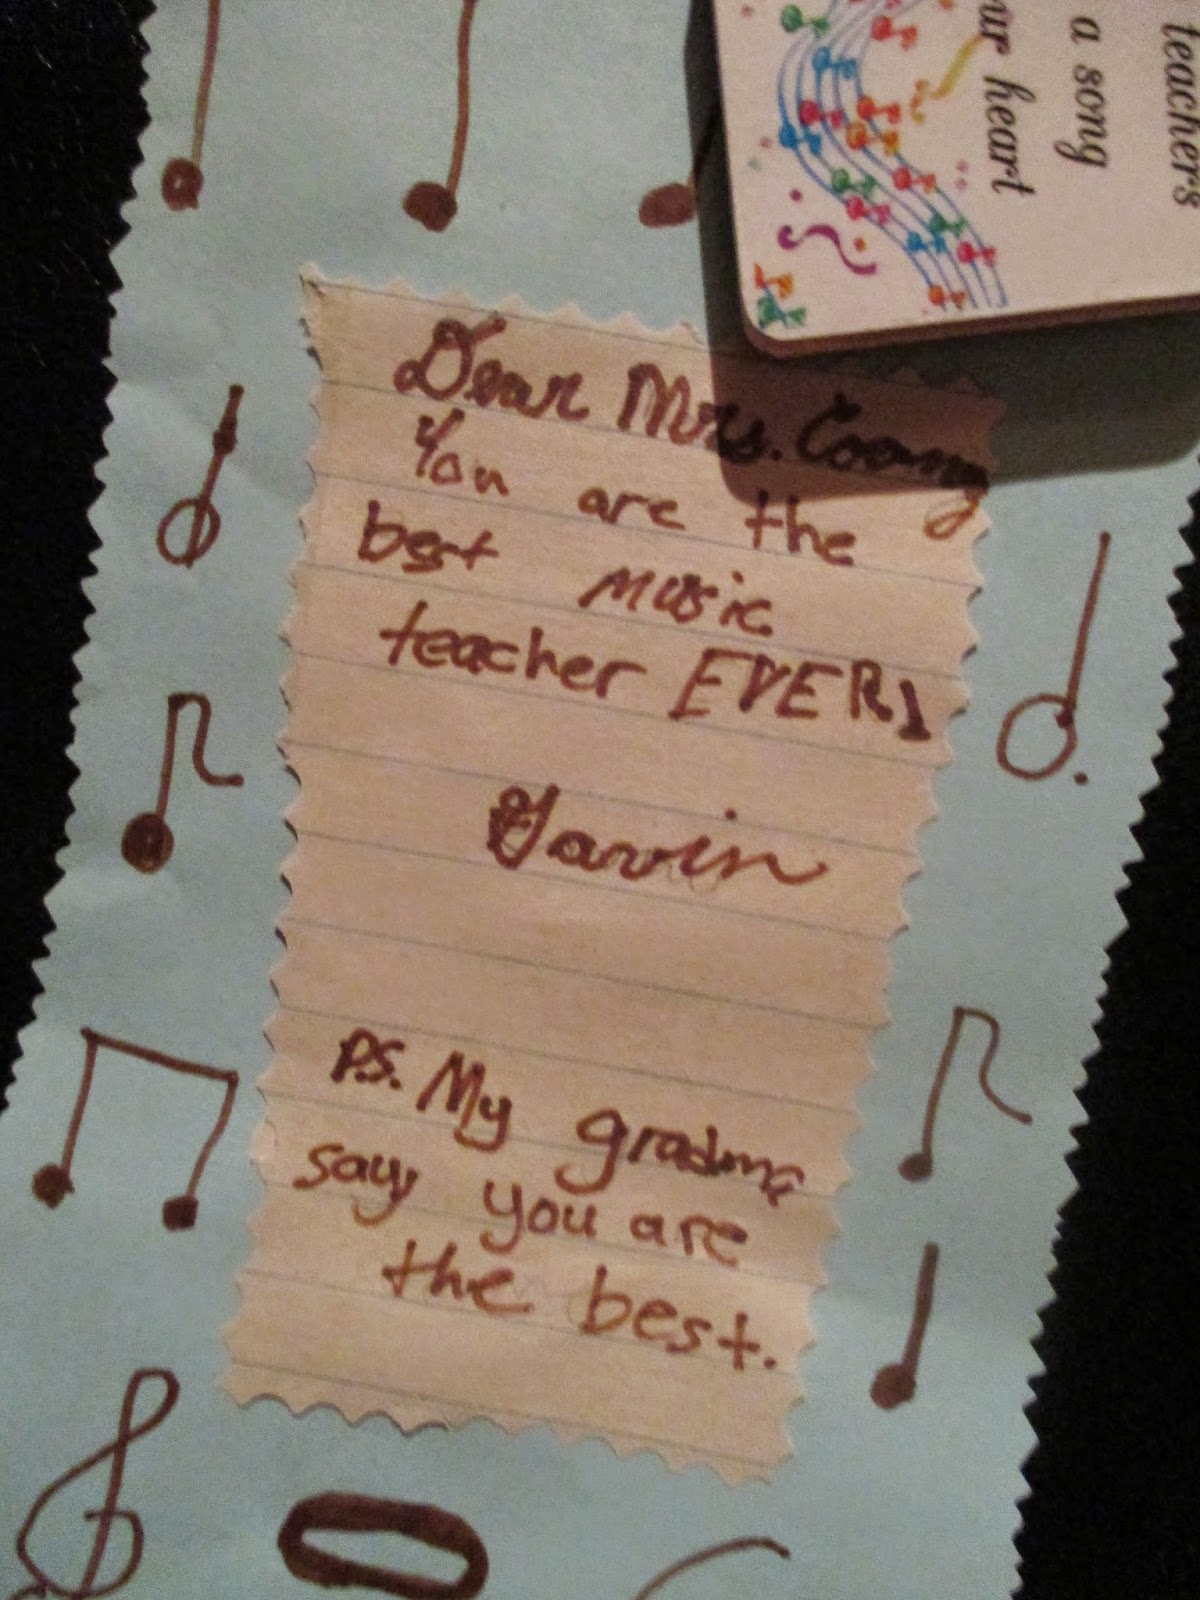 teacher's
a song
ur heart
Dear Mrs. Coomy
You are the
best music
teacher EVER!
Gavin
P.S. My gradma
say you are
the best.